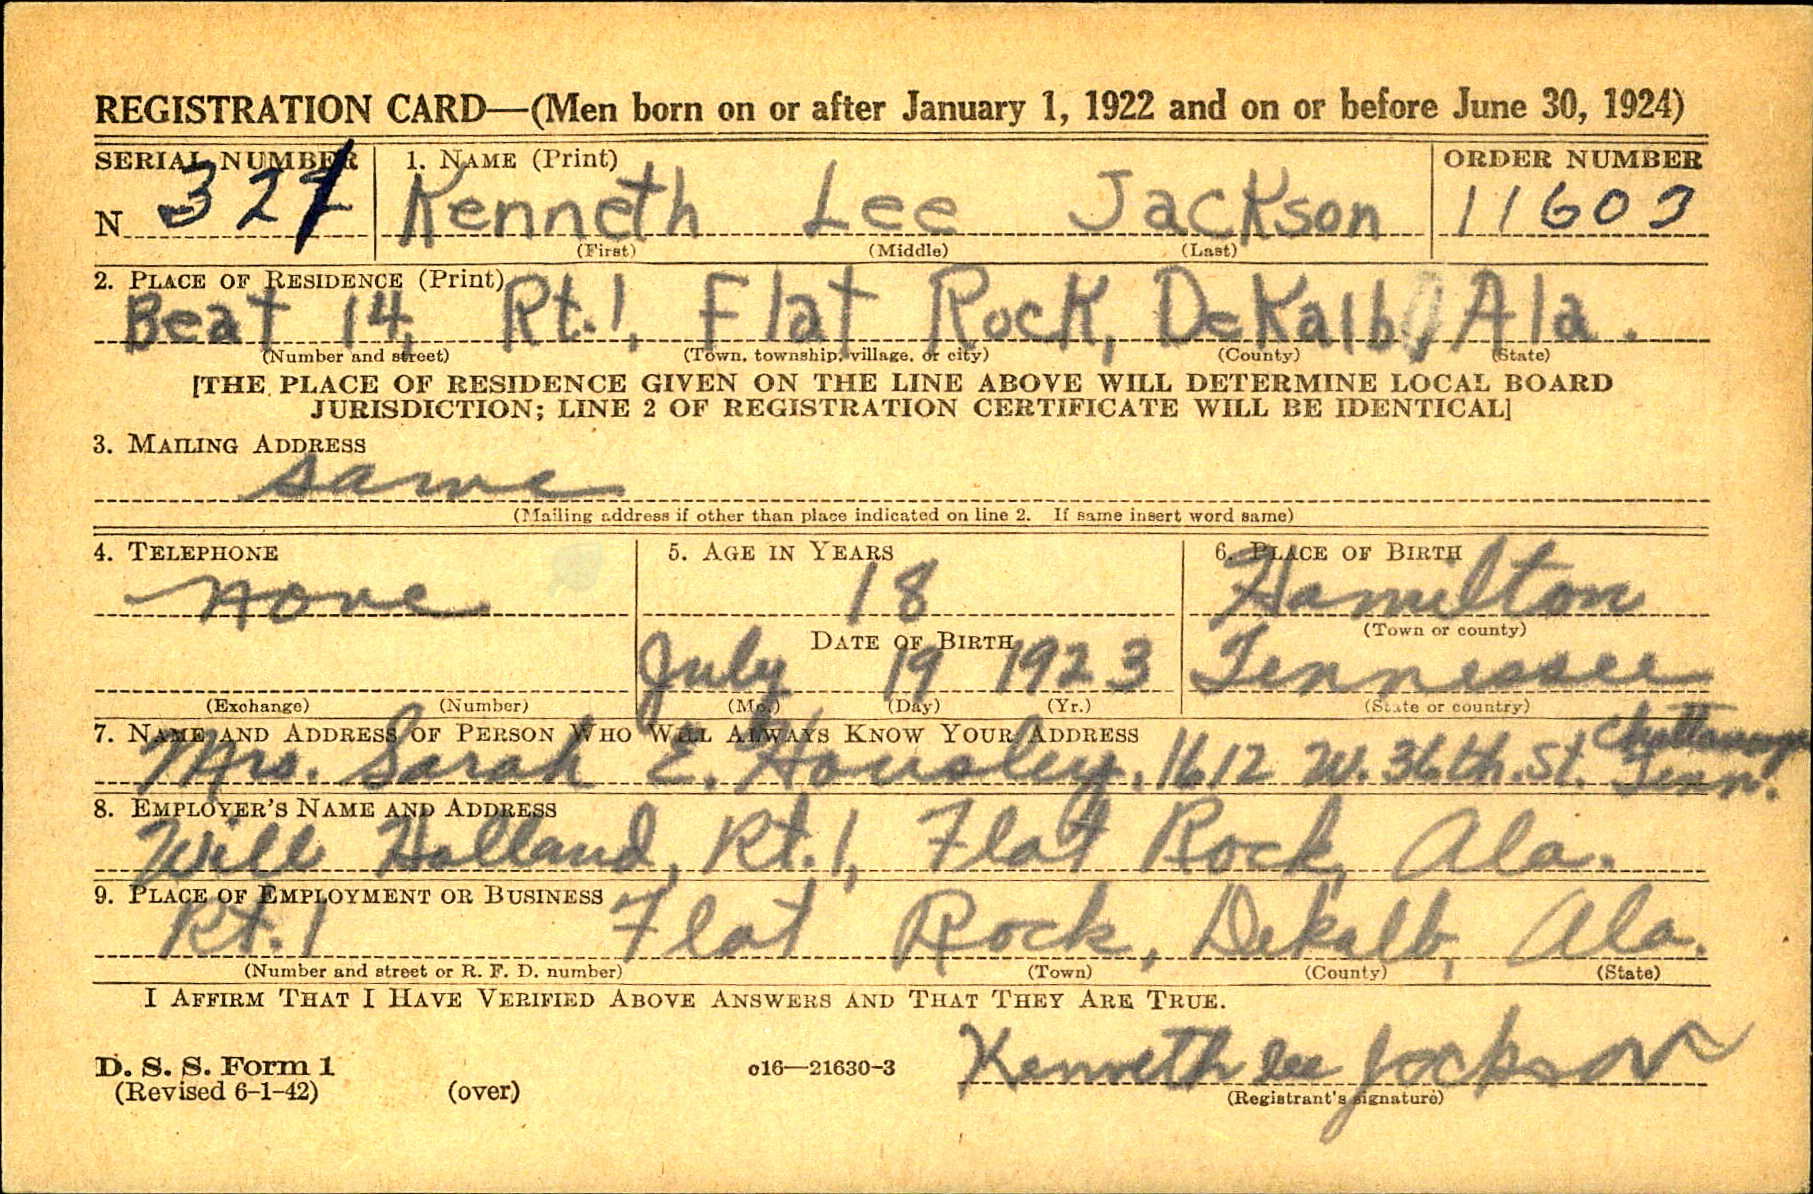 REGISTRATION CARD—(Men born on or after January 1, 1922 and on or before June 30, 1924)
SERIAL NUMBER 1. NAME (Print) ORDER NUMBER
N 327 Kenneth Lee Jackson 11603
(First) (Middle) (Last)
2. PLACE OF RESIDENCE (Print)
Beat 14, Rt. 1, Flat Rock, DeKalb, Ala.
(Number and street) (Town, township, village, or city) (County) (State)
[THE PLACE OF RESIDENCE GIVEN ON THE LINE ABOVE WILL DETERMINE LOCAL BOARD
JURISDICTION; LINE 2 OF REGISTRATION CERTIFICATE WILL BE IDENTICAL]
3. MAILING ADDRESS
same
(Mailing address if other than place indicated on line 2. If same insert word same)
4. TELEPHONE 5. AGE IN YEARS 6. PLACE OF BIRTH
none 18 Hamilton
(Town or county)
DATE OF BIRTH
July 19 1923 Tennessee
(Exchange) (Number) (Mo.) (Day) (Yr.) (State or country)
7. NAME AND ADDRESS OF PERSON WHO WILL ALWAYS KNOW YOUR ADDRESS
Mrs. Sarah E. Housley, 1612 W. 36th. St. Chattanooga Tenn.
8. EMPLOYER'S NAME AND ADDRESS
Will Holland, Rt. 1, Flat Rock, Ala.
9. PLACE OF EMPLOYMENT OR BUSINESS
Rt. 1 Flat Rock, Dekalb, Ala.
(Number and street or R. F. D. number) (Town) (County) (State)
I AFFIRM THAT I HAVE VERIFIED ABOVE ANSWERS AND THAT THEY ARE TRUE.
Kenneth lee Jackson
D. S. S. Form 1 c16—21630-3
(Revised 6-1-42) (over) (Registrant's signature)